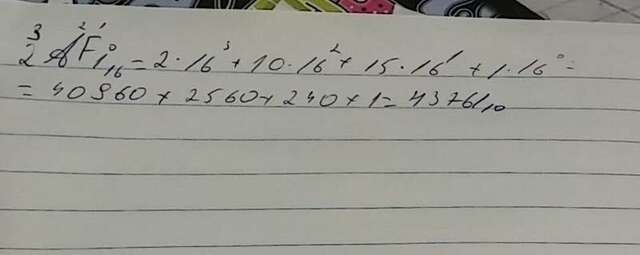 2³A²F¹1⁰₁₆ = 2·16³ + 10·16² + 15·16¹ + 1·16⁰ =
= 40960 + 2560 + 240 + 1 = 43761₁₀